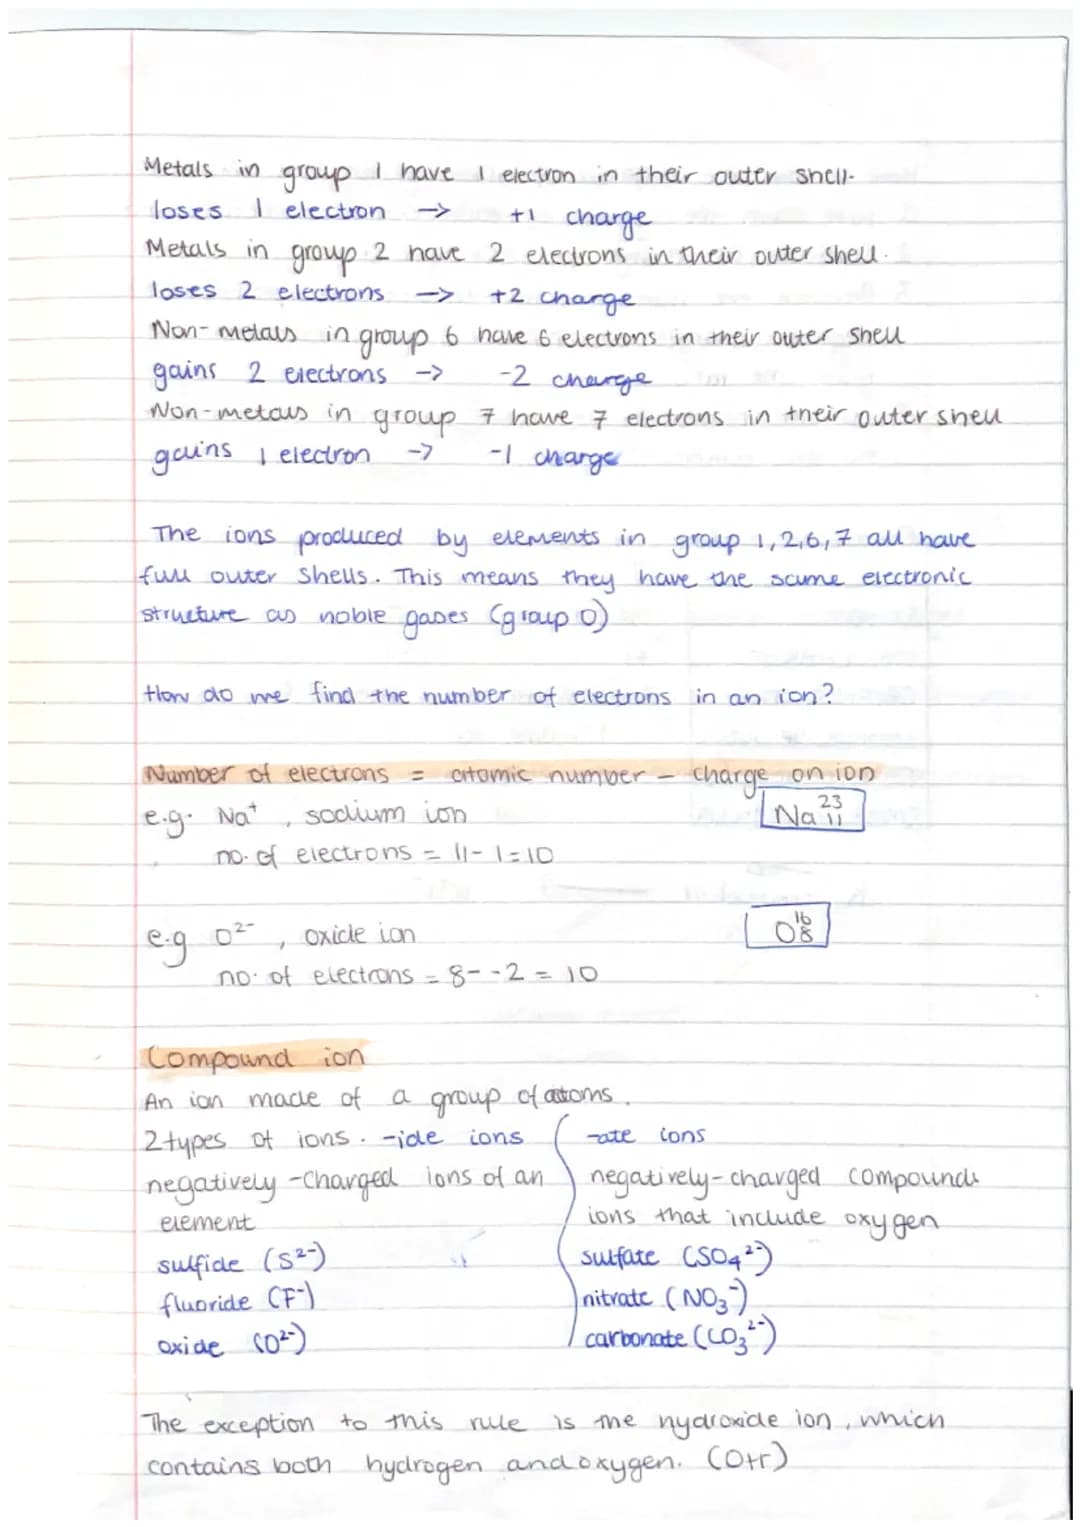 Metals in group 1 have 1 electron in their outer shell.
loses 1 electron -> +1 charge
Metals in group 2 have 2 electrons in their outer shell.
loses 2 electrons -> +2 charge
Non-metals in group 6 have 6 electrons in their outer shell
gains 2 electrons -> -2 charge
Non-metals in group 7 have 7 electrons in their outer shell
gains 1 electron -> -1 charge
The ions produced by elements in group 1,2,6,7 all have
full outer shells. This means they have the same electronic
structure as noble gases (group 0)
How do we find the number of electrons in an ion?
Number of electrons = atomic number - charge on ion
e.g. Na⁺, sodium ion
Na ²³₁₁
no. of electrons = 11-1=10
e.g O²⁻, oxide ion
O ¹⁶₈
no. of electrons = 8--2 = 10
Compound ion
An ion made of a group of atoms.
2 types of ions. -ide ions
negatively-charged ions of an
element
sulfide (S²⁻)
fluoride (F⁻)
oxide (O²⁻)
-ate ions
negatively-charged compounds
ions that include oxygen
sulfate (SO₄²⁻)
nitrate (NO₃⁻)
carbonate (CO₃²⁻)
The exception to this rule is the hydroxide ion, which
contains both hydrogen and oxygen. (OH⁻)